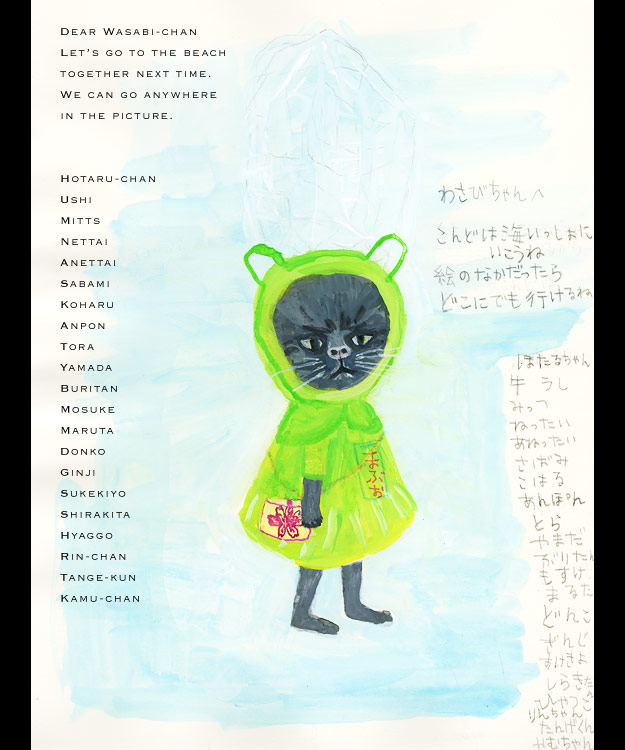 DEAR WASABI-CHAN
LET'S GO TO THE BEACH
TOGETHER NEXT TIME.
WE CAN GO ANYWHERE
IN THE PICTURE.
HOTARU-CHAN
USHI
MITTS
NETTAI
ANETTAI
SABAMI
KOHARU
ANPON
TORA
YAMADA
BURITAN
MOSUKE
MARUTA
DONKO
GINJI
SUKEKIYO
SHIRAKITA
HYAGGO
RIN-CHAN
TANGE-KUN
KAMU-CHAN
わさびちゃんへ
こんどは海いっしょに
いこうね
絵のなかだったら
どこにでも行けるね
ほたるちゃん
牛 うし
みっつ
ねったい
あねったい
さばみ
こはる
あんぽん
とら
やまだ
ぶりたん
もすけ
まるた
どんこ
ぎんじ
すけきよ
しらきた
ひゃっこ
りんちゃん
たんげくん
かむちゃん